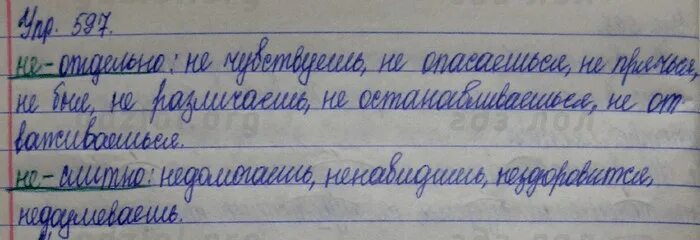 Упр. 597.
не-отдельно: не чувствуешь, не опасаешься, не прячься,
не был, не различаешь, не останавливаешься, не от-
важиваешься.
не-слитно: недомогаешь, ненавидишь, нездоровится,
недоумеваешь.